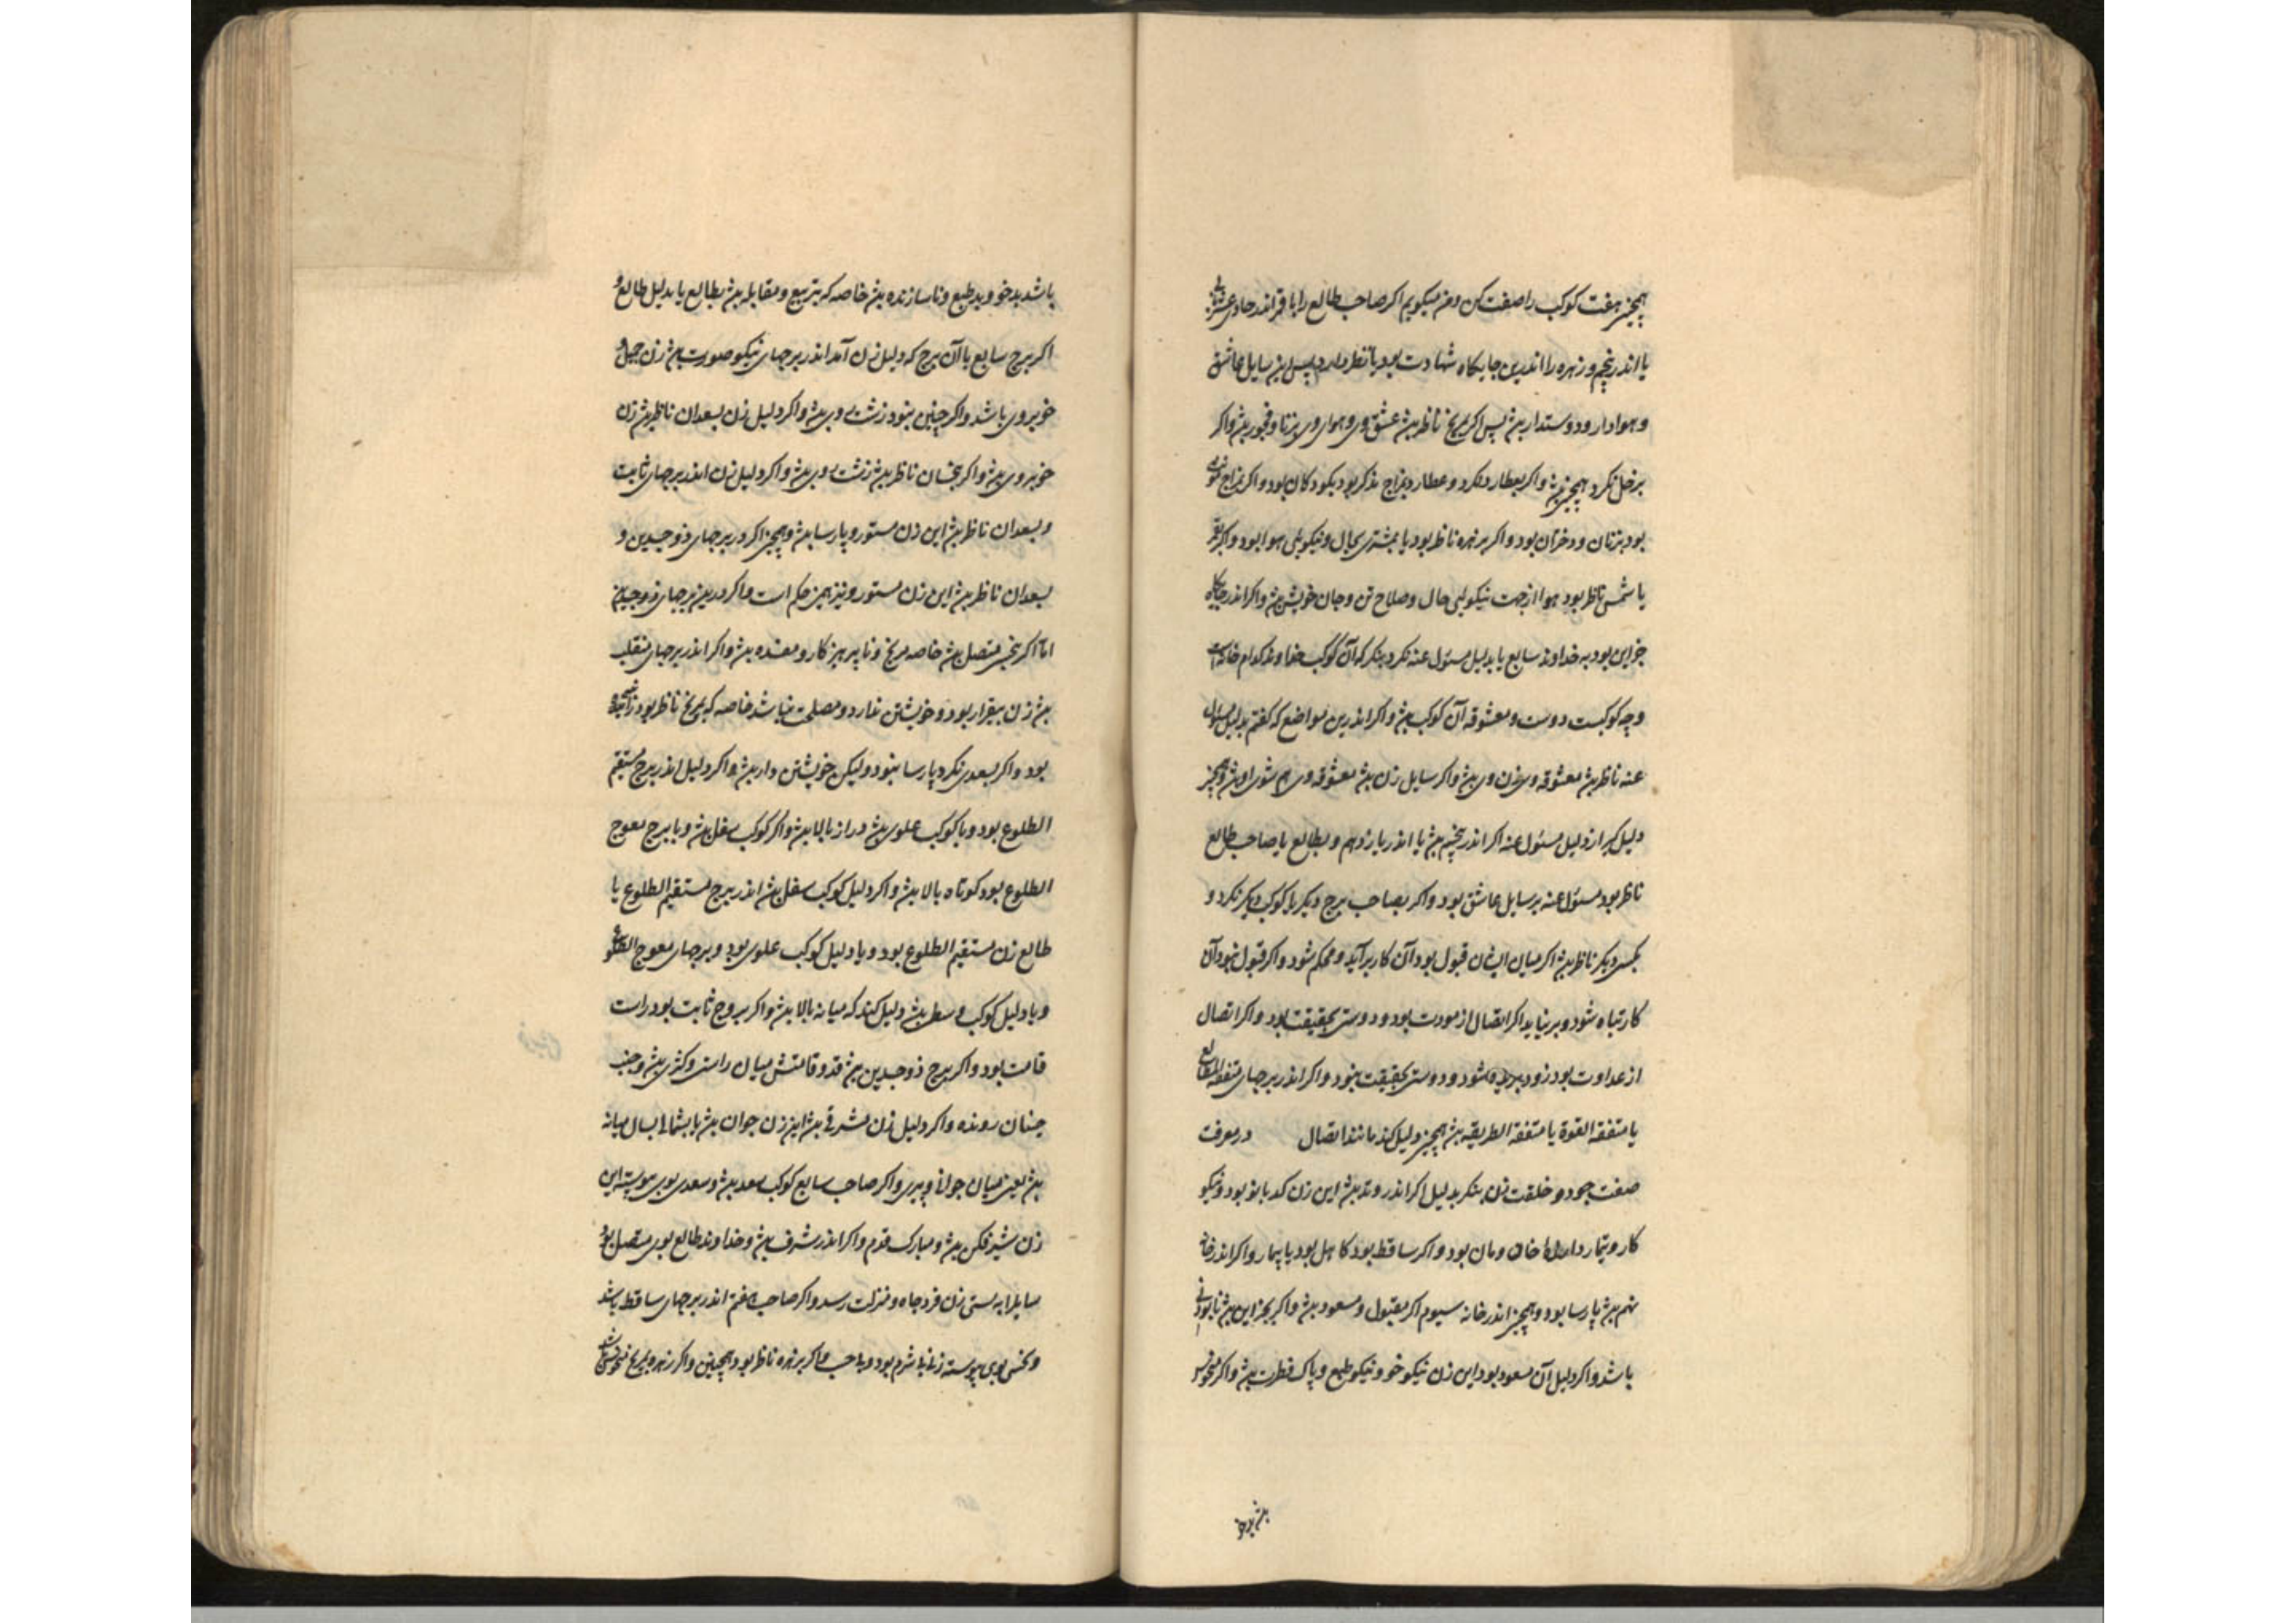 همچنین هفت کوکب را صفت کن و من میگویم اکر صاحب طالع را با قمر اندر حادی عشر
یا اندر پنجم و زهره را اندرین جایکاه شهادت بود یا نظر دارد پس این سایل عاشق
و هوادار و دوستدار بش پس اکر بمریخ ناظر بش عشق وی و هوای وی بزنا و فجور بش و اکر
بزحل نکرد همچنین بش و اکر بعطارد نکرد و عطارد بمزاج مذکر بود بکودکان بود و اکر بمزاج
بود بزنان و دختران بود و اکر بزهره ناظر بود یا بمشتری بجمال و نیکویی هوا بود و اکر بقمر
یا شمس ناظر بود هوا از جهت نیکویی حال و صلاح تن و جان خویش بش و اکر اندر جایکاه
جز این بود به خداوند سابع یا بدلیل مسئول عنه نکرد بنکر که آن کوکب خداوند کدام خانه است
و چه کوکبست دوست و معشوقه آن کوکب بش و اکر اندرین مواضع که کفتم بدلیل مسئول
عنه ناظر بش معشوقه وی زن وی بش و اکر سایل زن بش معشوقه وی هم شوی او بش و همچنین
دلیل کیر از دلیل مسئول عنه اکر اندر پنجم بش یا اندر یازدهم و بطالع یا صاحب طالع
ناظر بود مسئول عنه بر سایل عاشق بود و اکر بصاحب برج دیکر یا کوکب دیکر نکرد و
بکسی دیکر ناظر بش اکر میان ایشان قبول بود آن کار برآید و محکم شود و اکر قبول نبود آن
کار تباه شود و بر نیاید اکر اتصال از مودت بود و دوستی بحقیقت بود و اکر اتصال
از عداوت بود زود بریده شود و دوستی بحقیقت نبود و اکر اندر برجهای متفقة المطالع
یا متفقة القوة یا متفقة الطریقه بش همچنین دلیل کند مانند اتصال در معرفت
صفت و خلقت زن بنکر بدلیل اکر اندر وتد بش این زن کدبانو بود و نیکو
کار و تیمار دار خان و مان بود و اکر ساقط بود کاهل بود یا بیمار و اکر اندر خانه
نهم بش پارسا بود و همچنین اندر خانه سیوم اکر مقبول و مسعود بش و اکر بجز این بش
باشد و اکر دلیل آن مسعود بود این زن نیکو خو و نیکو طبع و پاک فطرت بش و اکر منحوس
باشد بدخو و بدطبع و ناسازنده بش خاصه که بتربیع و مقابله بش بطالع یا بدلیل طالع و
اکر برج سابع یا آن برج که دلیل زن آمد اندر برجهای نیکو صورت بش زن جمیل و
خوبروی باشد و اکر چنین نبود زشت روی بش و اکر دلیل زن بسعدان ناظر بش زن
خوبروی بش و اکر بنحسان ناظر بش زشت روی بش و اکر دلیل زن اندر برجهای ثابت
و بسعدان ناظر بش این زن مستور و پارسا بش و همچنین اکر در برجهای ذوجسدین و
بسعدان ناظر بش این زن مستور و نیز همین حکم است و اکر درین برجهای ذوجسدین
اما اکر بنحس متصل بش خاصه مریخ و ناپرهیزکار و مفسده بش و اکر اندر برجهای منقلب
بش زن بیقرار بود و خویشتن ندارد و مصلحت نباشد خاصه که بمریخ ناظر بود
بود و اکر بسعدی نکرد پارسا نبود ولیکن خویشتن دار بش و اکر دلیل اندر برج مستقیم
الطلوع بود و یا کوکب علوی بش دراز بالا بش و اکر کوکب سفلی بش و یا برج معوج
الطلوع بود کوتاه بالا بش و اکر دلیل کوکب سفلی بش اندر برج مستقیم الطلوع یا
طالع زن مستقیم الطلوع بود و یا دلیل کوکب علوی بود و برجهای معوج الطلوع
و یا دلیل کوکب وسط بش دلیل کند که میانه بالا بش و اکر بروج ثابت بود راست
قامت بود و اکر برج ذوجسدین بش قد و قامتش میان راستی و کژی بش و جنب
جنبان رونده و اکر دلیل زن مشرقی بش این زن جوان بش یا بشمالی بسال میانه
بش یعنی میان جوانی و پیری و اکر صاحب سابع کوکب سعد بش و سعدی بوی پیوسته این
زن شیرفکن بش و مبارک قدم و اکر اندر شرف بش و خداوند طالع بوی متصل بود
سایل را بسبب زن فر و جاه و منزلت رسد و اکر صاحب هفتم اندر برجهای ساقط باشد
و نحس بوی پیوسته زنی بی شرم بود و اکر بزهره ناظر بود همچنین و اکر زهره بمریخ